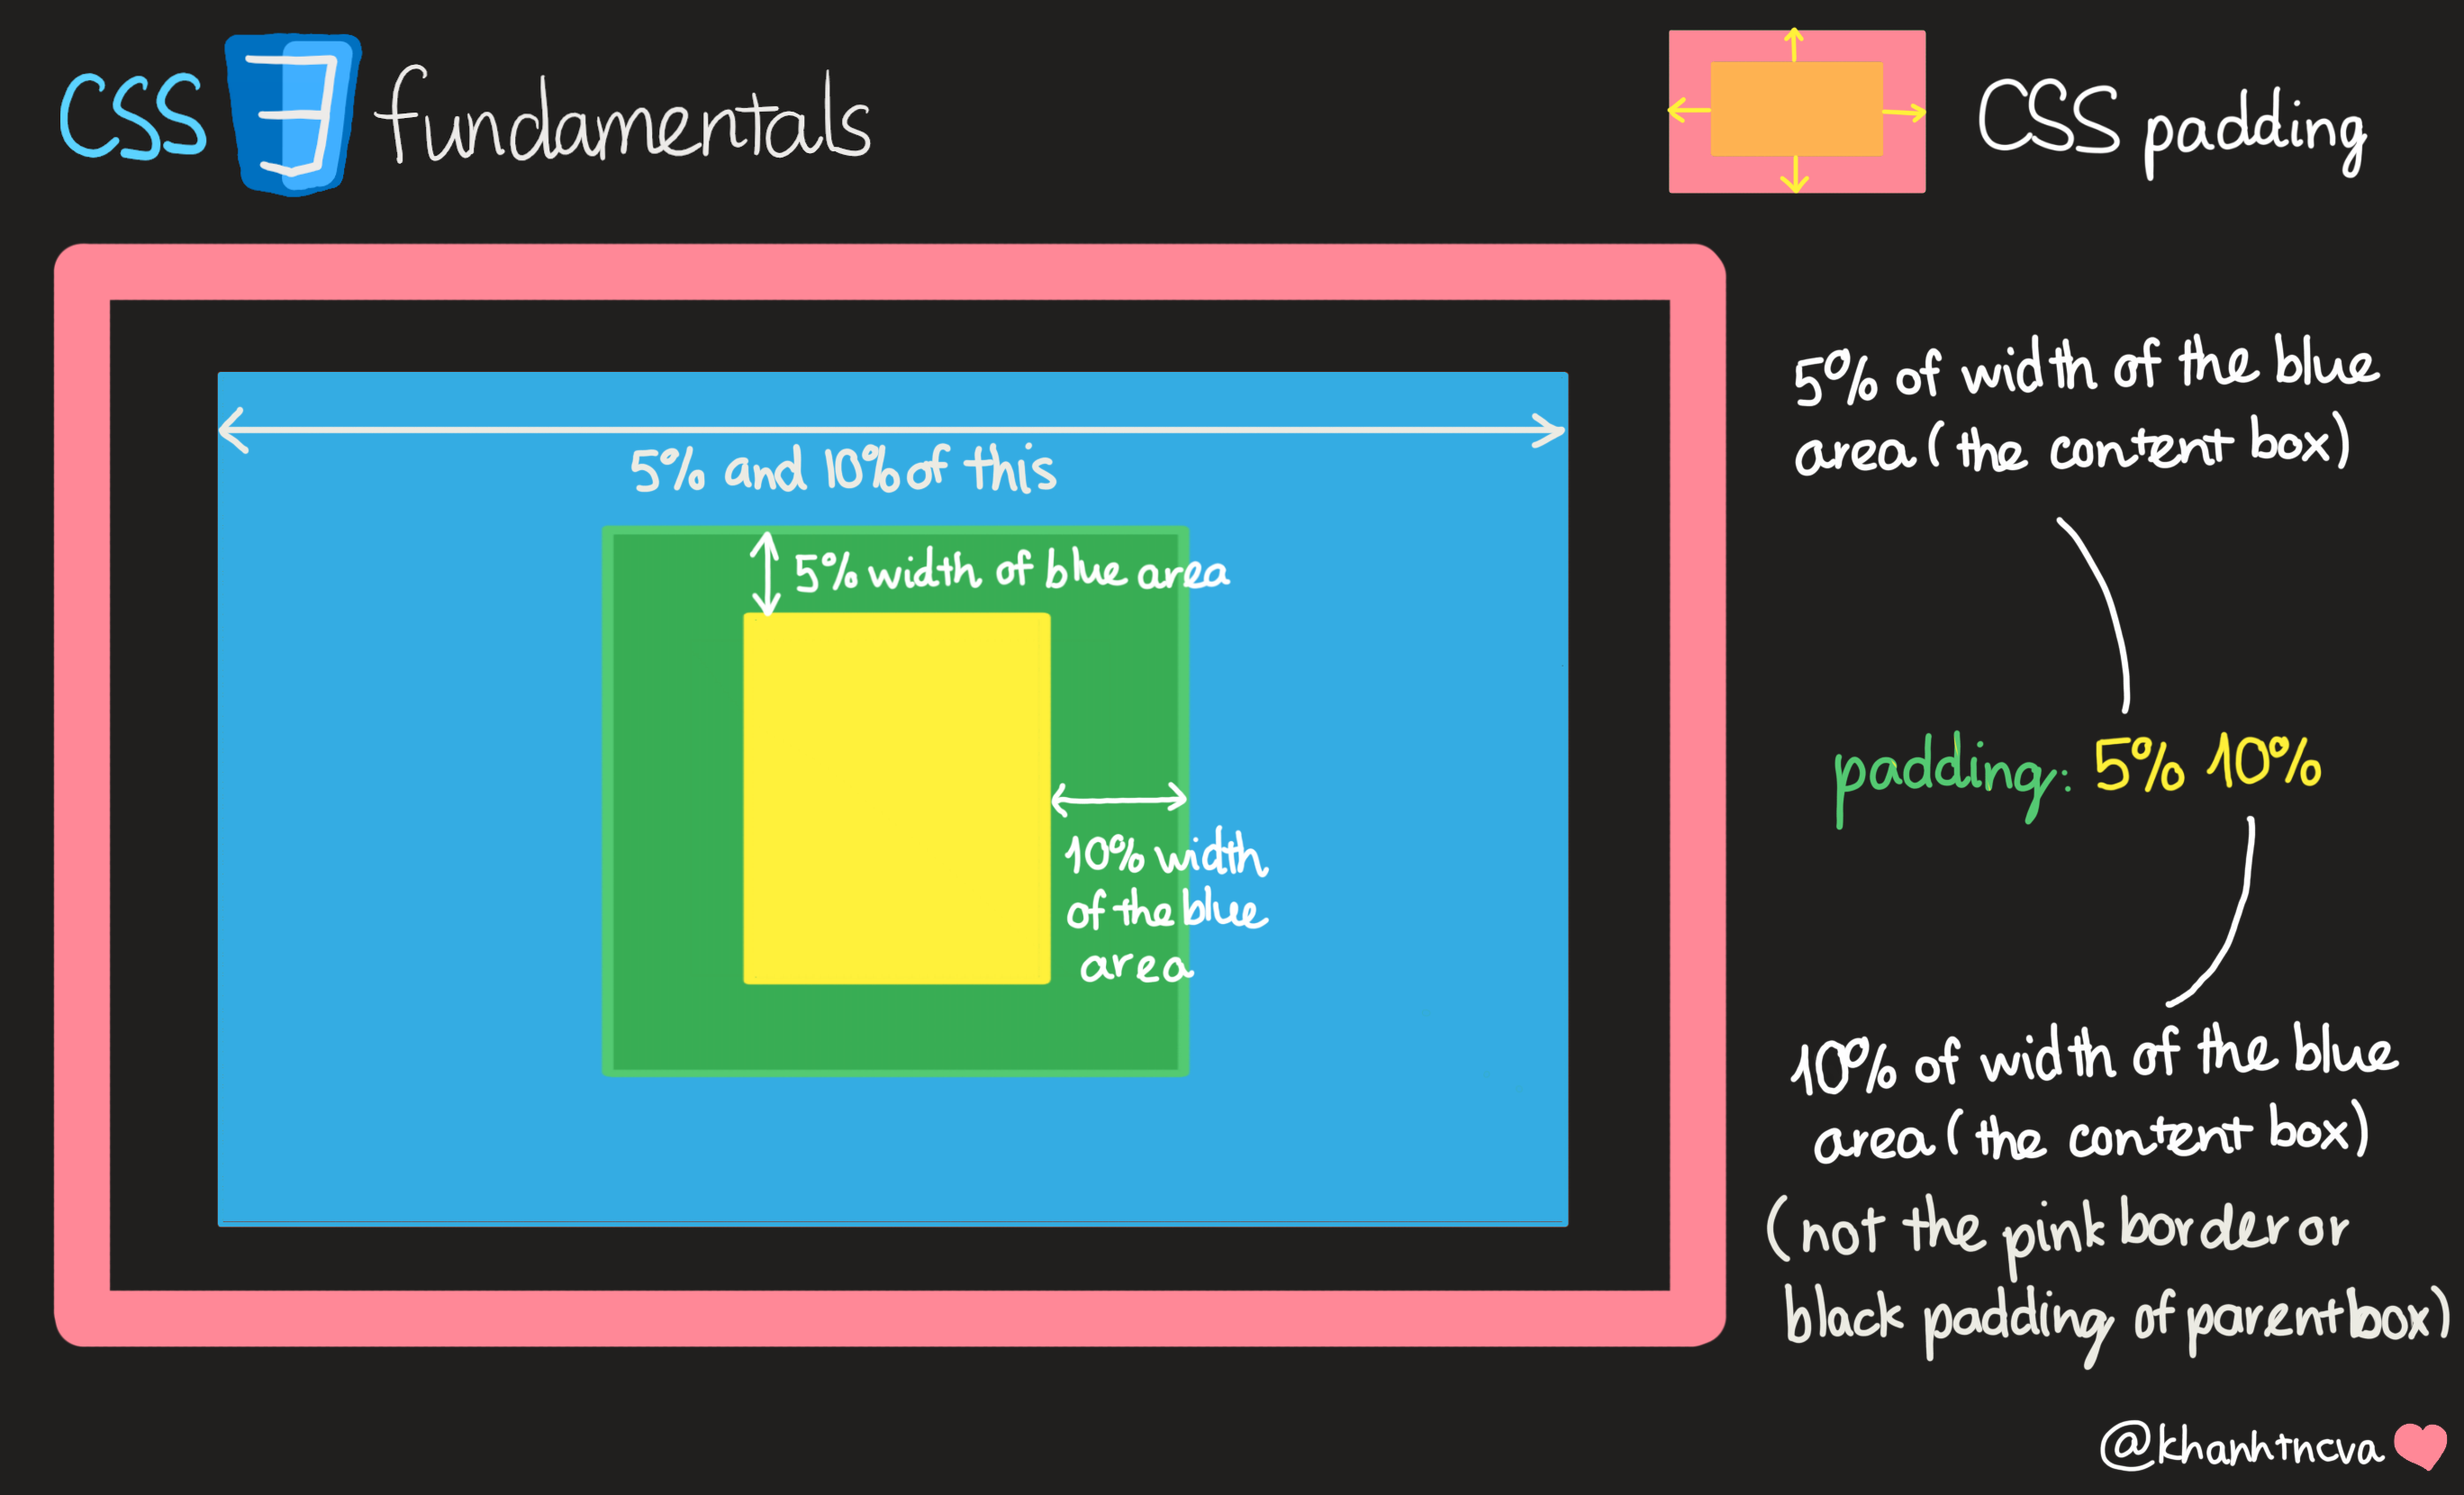 CSS fundamentals
CSS padding
5% and 10% of this
5% width of blue area
10% width
of the blue
area
5% of width of the blue
area (the content box)
padding: 5% 10%
10% of width of the blue
area (the content box)
(not the pink border or
black padding of parent box)
@khanhtncva